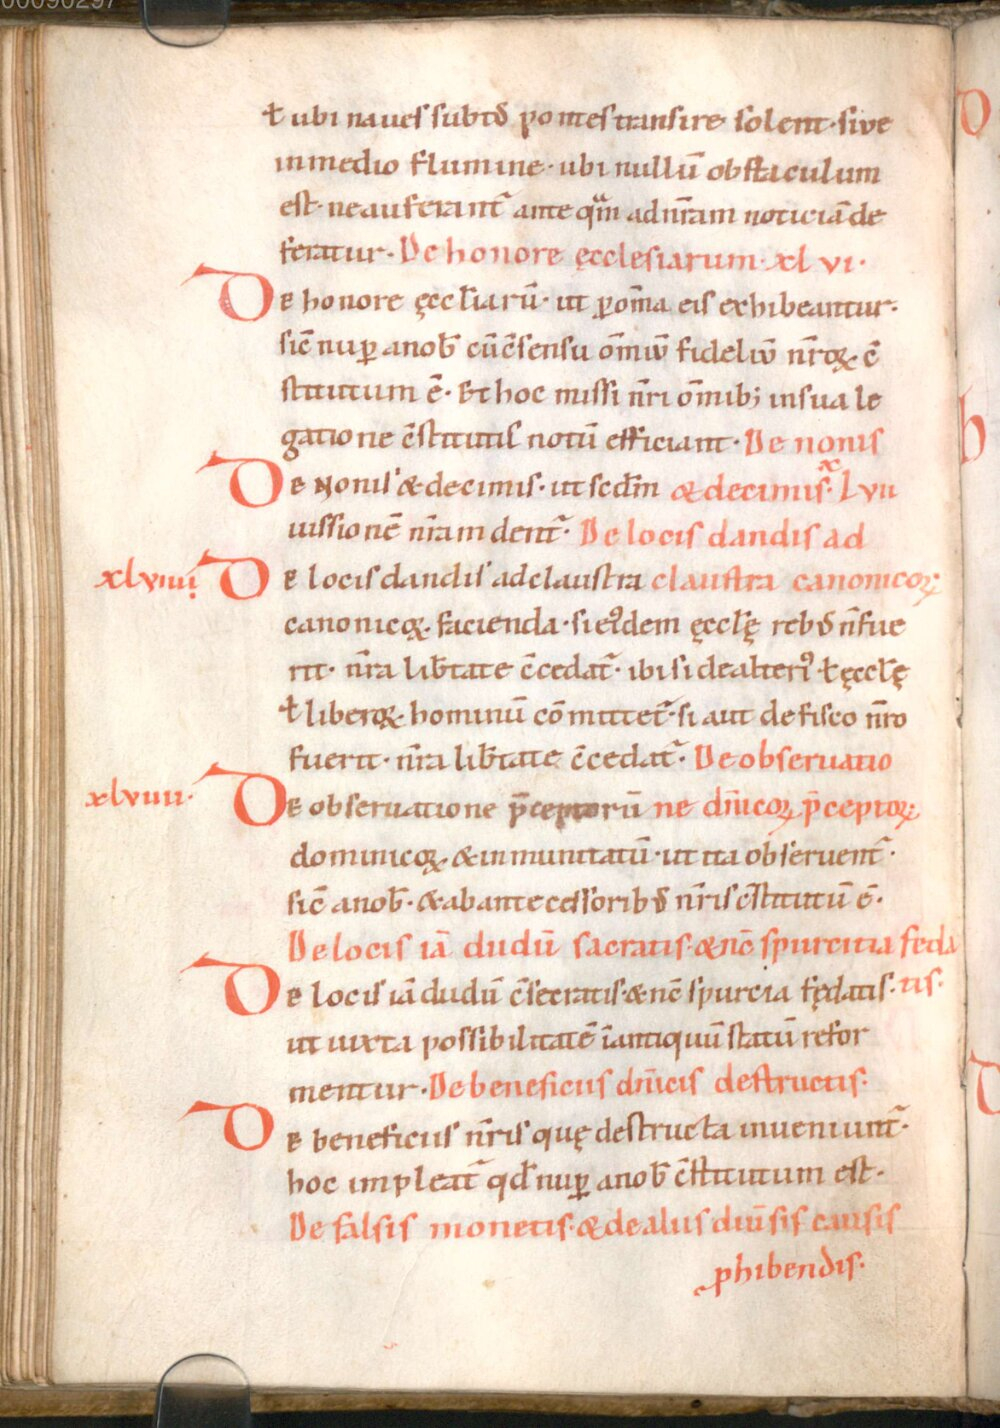 00090297
ł ubi naues subtꝰ pontes transire solent· sive
in medio flumine· ubi nullū obstaculum
est· ne auferant̄ ante qͣm ad nr̄am noticiā de
feratur· De honore ęcclesiarum· xlvi·
De honore ęccl̄iarū· ut ꝑ om̄a eis exhibeantur·
sic̄ nuꝑ a nob̄ cū c̄sensu om̄iū fideliū nr̄oꝝ· c̄
stitutum ē· Et hoc missi nr̄i om̄ibꝫ in sua le
gatione c̄stitutis notū efficiant· De nonis
De Nonis & decimis· ut scd̄m & decimis· xlvii
iussionē nr̄am dent̄· De locis dandis ad
xlviii De locis dandis ad claustra claustra canonicoꝝ
canonicoꝝ· facienda· si eiꝰdem ęccl̄ę rebꝰ n̄ fue
rit· nr̄a lib̄tate c̄cedat̄· ibi si de alteriꝰ ł ęccl̄ę
ł liberoꝝ· hominū cō mittet̄· si aut de fisco nr̄o
fuerit· nr̄a lib̄tate c̄cedat̄· De obseruatio
xlviiii· De obseruatione p̄ceptorū ne dn̄icoꝝ p̄ceptoꝝ
dominicoꝝ· & inmunitatū· ut ita obseruent̄·
sic̄ a nob̄· & ab antecessoribꝰ nr̄is c̄stitutū ē·
De locis iā dudū sacratis· & nc̄ spurcitia feda
De locis iā dudū c̄secratis· & nc̄ spurcia fędatis· tis·
ut iuxta possibilitatē ī antiquū statū refor
mentur· De beneficiis dn̄icis destructis·
De beneficiis nr̄is quę destructa inueniunt̄·
hoc impleat̄ qd̄ nuꝑ a nob̄ c̄stitutum est·
De falsis monetis· & de aliis diūsis causis
ꝓhibendis·